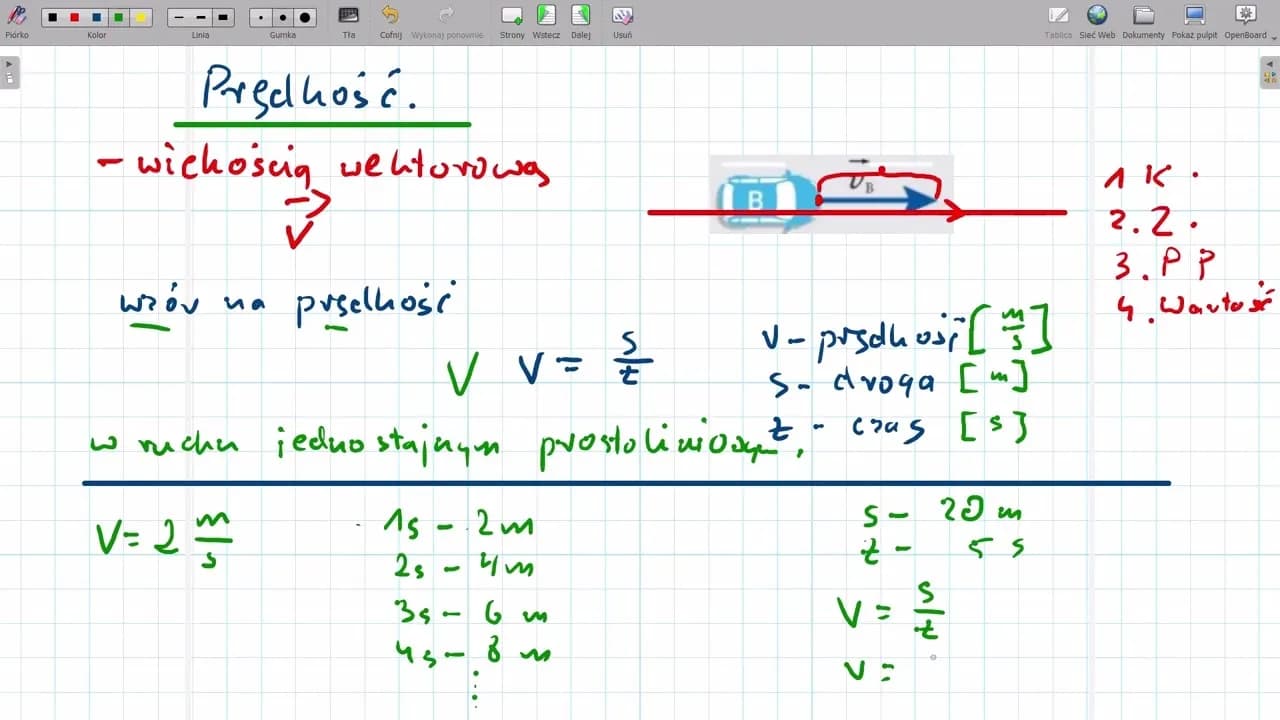 Piórko
Kolor
Linia
Gumka
Tła
Cofnij
Wykonaj ponownie
Strony
Wstecz
Dalej
Usuń
Tablica
Sieć Web
Dokumenty
Pokaż pulpit
OpenBoard
Prędkość.
- wielkością wektorową
V
B
υB
1 K.
2. Z.
3. P P
4. Wartość
wzór na prędkość
V V = s/t
v - prędkość [m/s]
s - droga [m]
t - czas [s]
w ruchu jednostajnym prostoliniowym.
V = 2 m/s
1s - 2m
2s - 4m
3s - 6 m
4s - 8 m
s - 20 m
t - 5 s
V = s/t
V =